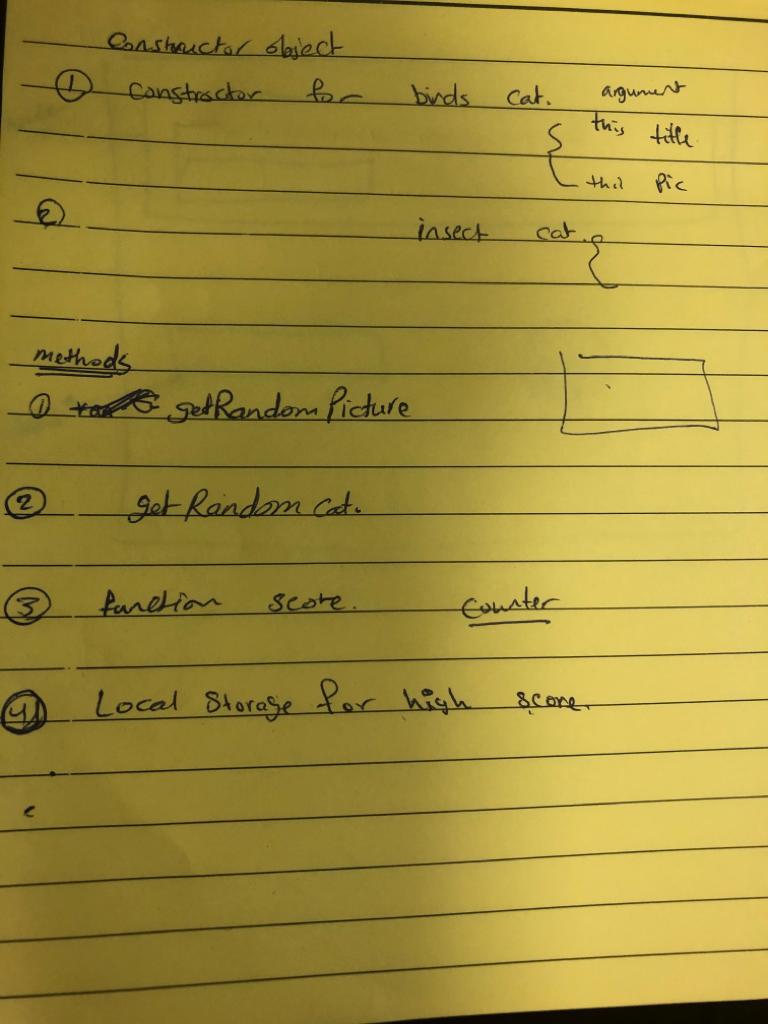 Constructor object
① Constroctor for birds cat. argument
this title
this pic
② insect cat.
methods
① getRandomPicture
② get Random cat.
③ function score. Counter
④ Local Storage for high score.